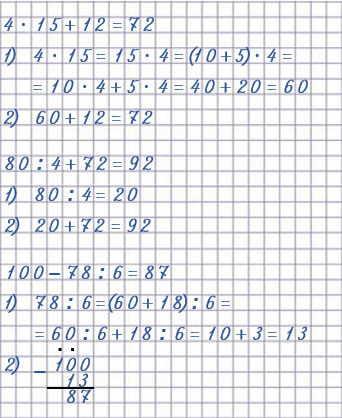 4 · 15 + 12 = 72
1) 4 · 15 = 15 · 4 = (10 + 5) · 4 =
= 10 · 4 + 5 · 4 = 40 + 20 = 60
2) 60 + 12 = 72
80 : 4 + 72 = 92
1) 80 : 4 = 20
2) 20 + 72 = 92
100 – 78 : 6 = 87
1) 78 : 6 = (60 + 18) : 6 =
= 60 : 6 + 18 : 6 = 10 + 3 = 13
2) – 100
13
87